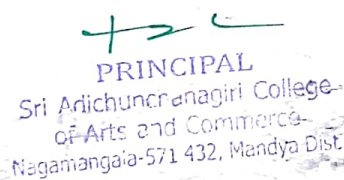 PRINCIPAL
Sri Adichunchanagiri College
of Arts and Commerce
Nagamangala-571 432, Mandya Dist